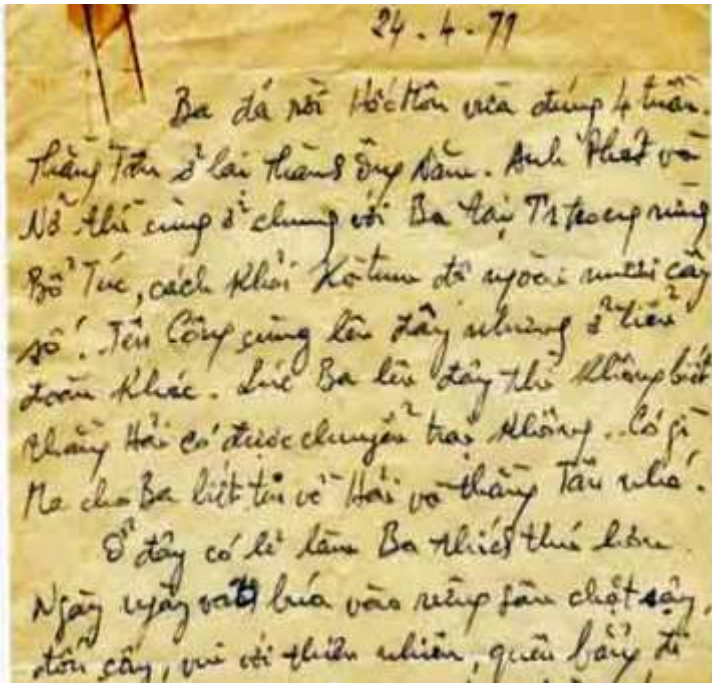 24 - 4 - 77
Ba đã rời Hóc Môn vừa đúng 4 tuần.
Thằng Tấn ở lại thành ông Năm. Anh Phát và
Nô thì cùng ở chung với Ba tại Tr trong rừng
Bổ Túc, cách khỏi Kà tum độ ngoài mười cây
số. Tên Công cũng lên đây nhưng ở tiểu
đoàn khác. Lúc Ba lên đây thì không biết
thằng Hải có được chuyển trại không.. Có gì
Me cho Ba biết tin về Hải và thằng Tấn nhé.
Ở đây có lẽ làm Ba thích thú hơn.
Ngày ngày vác búa vào rừng chặt cây,
đốn cây, vui với thiên nhiên, quên bẵng đi